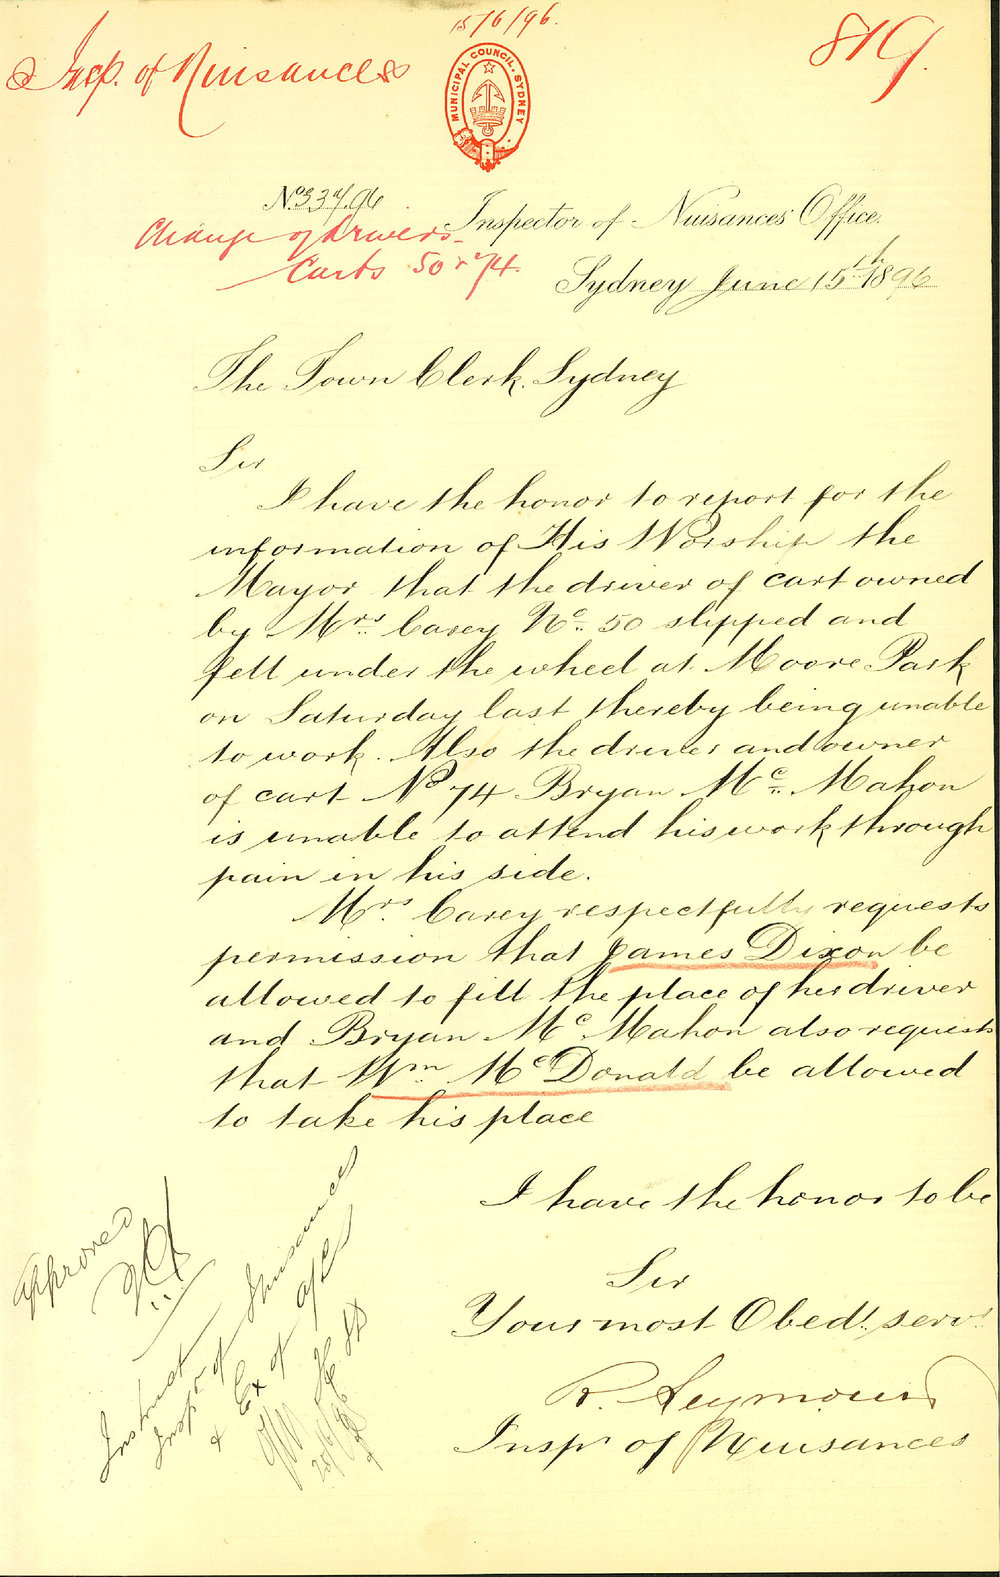 15/6/96.
819.
Insp. of Nuisances
MUNICIPAL COUNCIL. SYDNEY
No 334.96
Inspector of Nuisances' Office.
Change of Drivers.
Carts 50 & 74.
Sydney June 15th 1896
The Town Clerk. Sydney
Sir
I have the honor to report for the
information of His Worship the
Mayor that the driver of cart owned
by Mrs. Carey No. 50 slipped and
fell under the wheel at Moore Park
on Saturday last thereby being unable
to work. Also the driver and owner
of cart No 74 Bryan Mc. Mahon
is unable to attend his work through
pain in his side.
Mrs. Carey respectfully requests
permission that James Dixon be
allowed to fill the place of her driver
and Bryan Mc. Mahon also requests
that Wm McDonald be allowed
to take his place
I have the honor to be
Sir
Your most Obedt. servt.
R. Seymour
Inspr of Nuisances
Approved
Instruct
Inspr of Nuisances
& Ex of